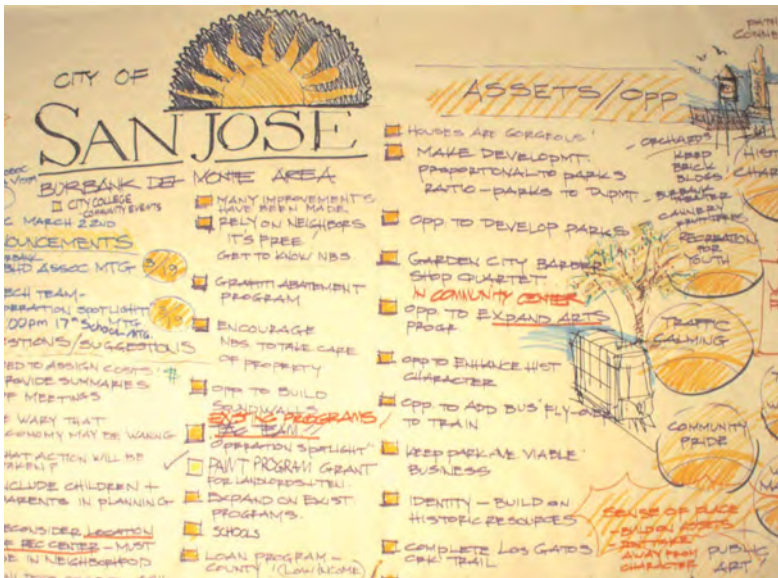 CITY OF
SAN JOSE
BURBANK DEL MONTE AREA
CITY COLLEGE
COMMUNITY EVENTS
MARCH 22ND
ASSOC MTG 3/9
TEAM-
SPOTLIGHT
17TH SCHOOL MTG.
/SUGGESTIONS
TO ASSIGN COSTS $
SUMMARIES
MEETINGS
WARY THAT
MAY BE WANING
ACTION WILL BE
CHILDREN +
IN PLANNING
LOCATION
REC CENTER - MUST
IN NEIGHBORHOOD
MANY IMPROVEMENTS
HAVE BEEN MADE
RELY ON NEIGHBORS
IT'S FREE
GET TO KNOW NBS.
GRAFFITI ABATEMENT
PROGRAM
ENCOURAGE
NBS TO TAKE CARE
OF PROPERTY
OPP TO BUILD
SOUNDWALLS
EXIST'G PROGRAMS/
TEAM/
"OPERATION SPOTLIGHT"
PAINT PROGRAM GRANT
FOR LANDLORDS + TEN.
EXPAND ON EXIST
PROGRAMS.
SCHOOLS
LOAN PROGRAM -
COUNTY (LOW INCOME)
ASSETS/OPP
HOUSES ARE GORGEOUS!
MAKE DEVELOPMT.
PROPORTIONAL TO PARKS
RATIO - PARKS TO DVPMT.
OPP. TO DEVELOP PARKS
GARDEN CITY BARBER
SHOP QUARTET
IN COMMUNITY CENTER
OPP. TO EXPAND ARTS
PROGR
OPP TO ENHANCE HIST
CHARACTER
OPP. TO ADD BUS 'FLY-OVER
TO TRAIN
KEEP PARK AVE VIABLE
BUSINESS
IDENTITY - BUILD ON
HISTORIC RESOURCES
COMPLETE LOS GATOS
CRK TRAIL
ORCHARDS
KEEP
BRICK
BLDGS
BURBANK
THEATER
CANNERY
RECREATION
FOR
YOUTH
TRAFFIC
CALMING
COMMUNITY
PRIDE
SENSE OF PLACE
- BUILD ON ASSETS
DON'T TAKE
AWAY FROM
CHARACTER
PUBLIC
ART